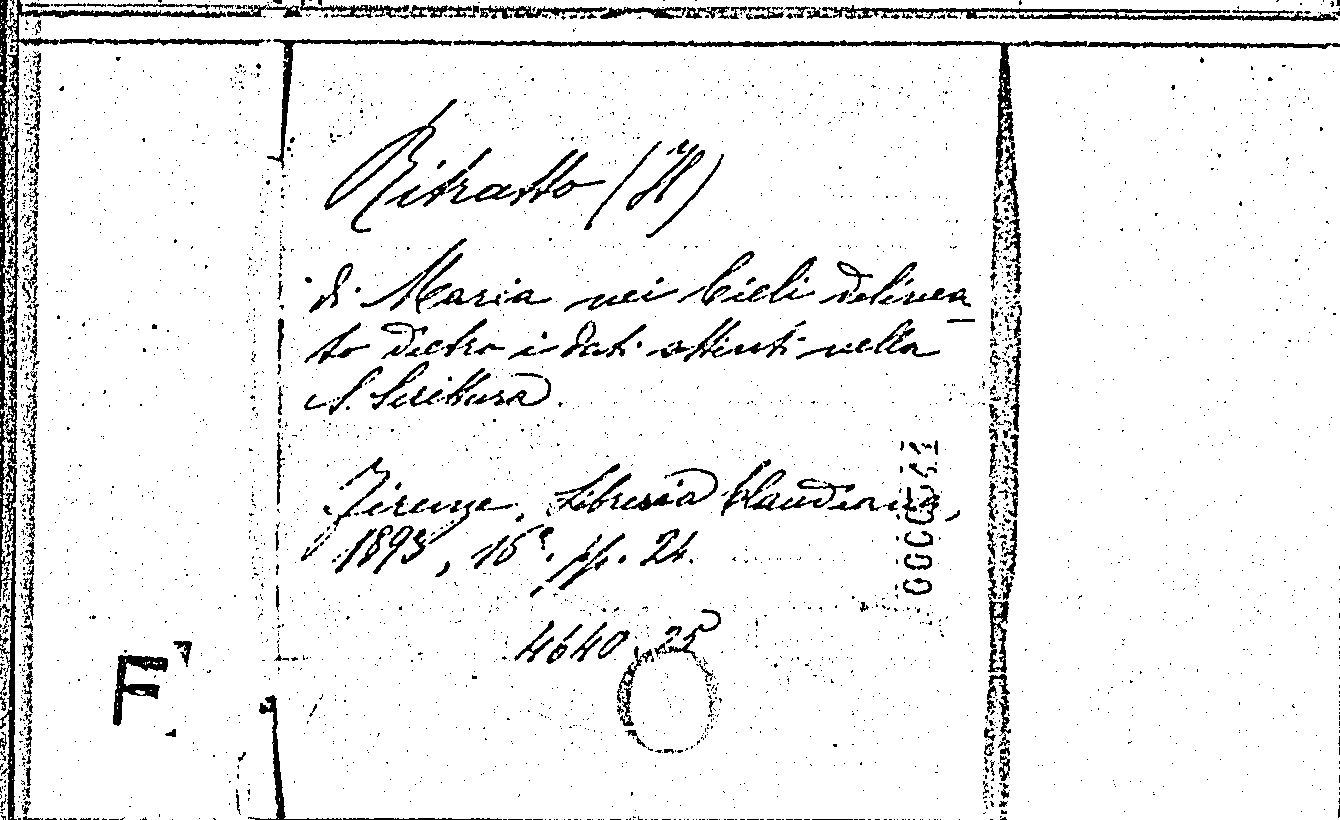 Ritratto (Il)
di Maria nei Cieli delinea-
to dietro i dati attinti nella
S. Scrittura.
Firenze, Libreria Claudiana,
1893, 16°. pp. 24.
4640. 25
F